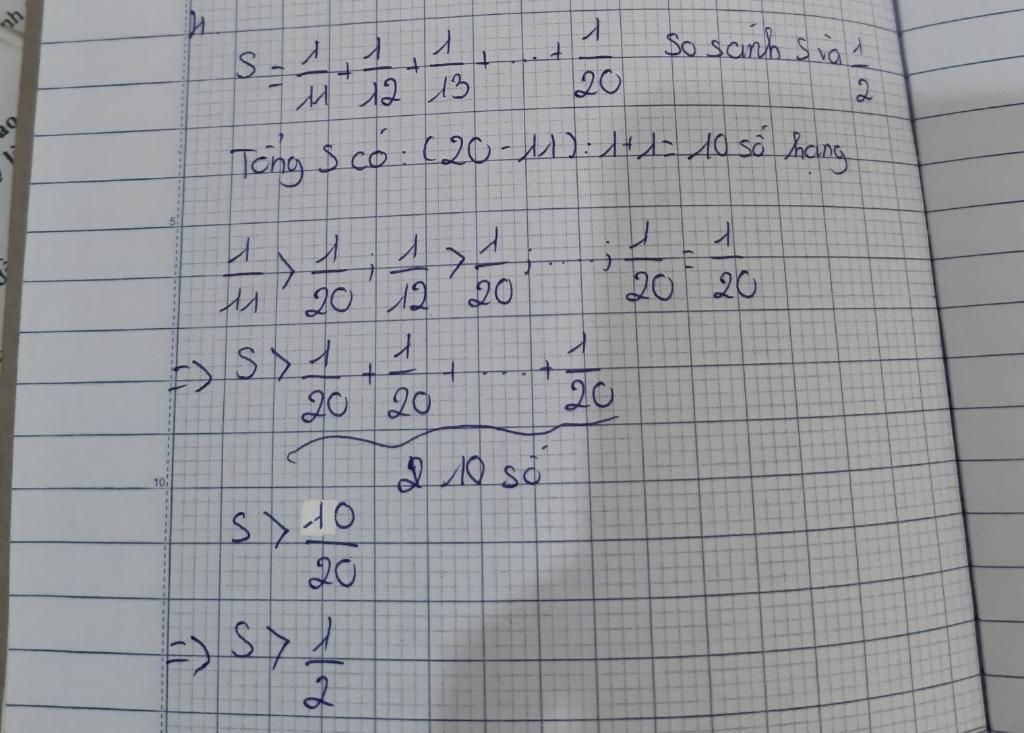 S = 1/11 + 1/12 + 1/13 + ... + 1/20 So sánh S và 1/2
Tổng S có : (20 - 11) : 1 + 1 = 10 số hạng
5
1/11 > 1/20 ; 1/12 > 1/20 ; ..... ; 1/20 = 1/20
=> S > 1/20 + 1/20 + ..... + 1/20
10 số
10
S > 10/20
=> S > 1/2